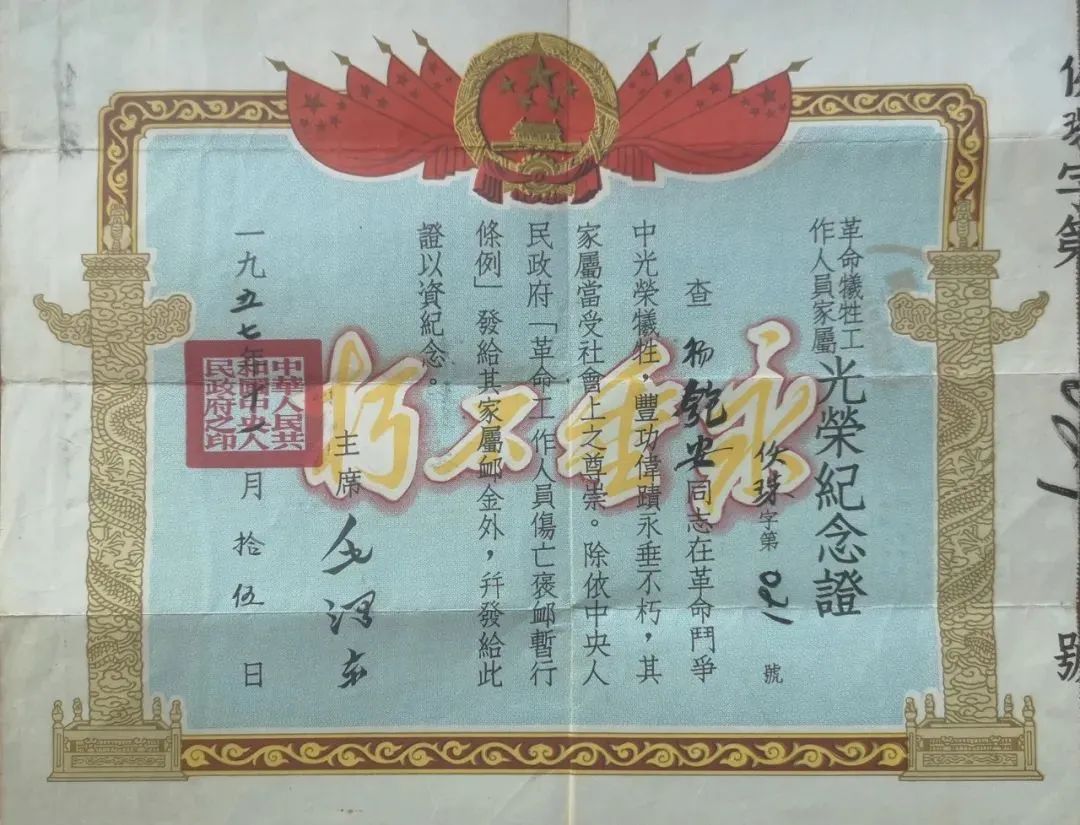 革命犧牲工
作人員家屬
光榮紀念證
珠字第
號
查杨匏安同志在革命鬥爭
中光榮犧牲，豐功偉蹟永垂不朽，其
家屬當受社會上之尊崇。除依中央人
民政府「革命工作人員傷亡褒䘏暫行
條例」發給其家屬䘏金外，幷發給此
證以資紀念。
主席 毛澤东
一九五七年十一月拾伍日
永垂不朽
中華人民共
和國中央人
民政府之印
珠字第
號